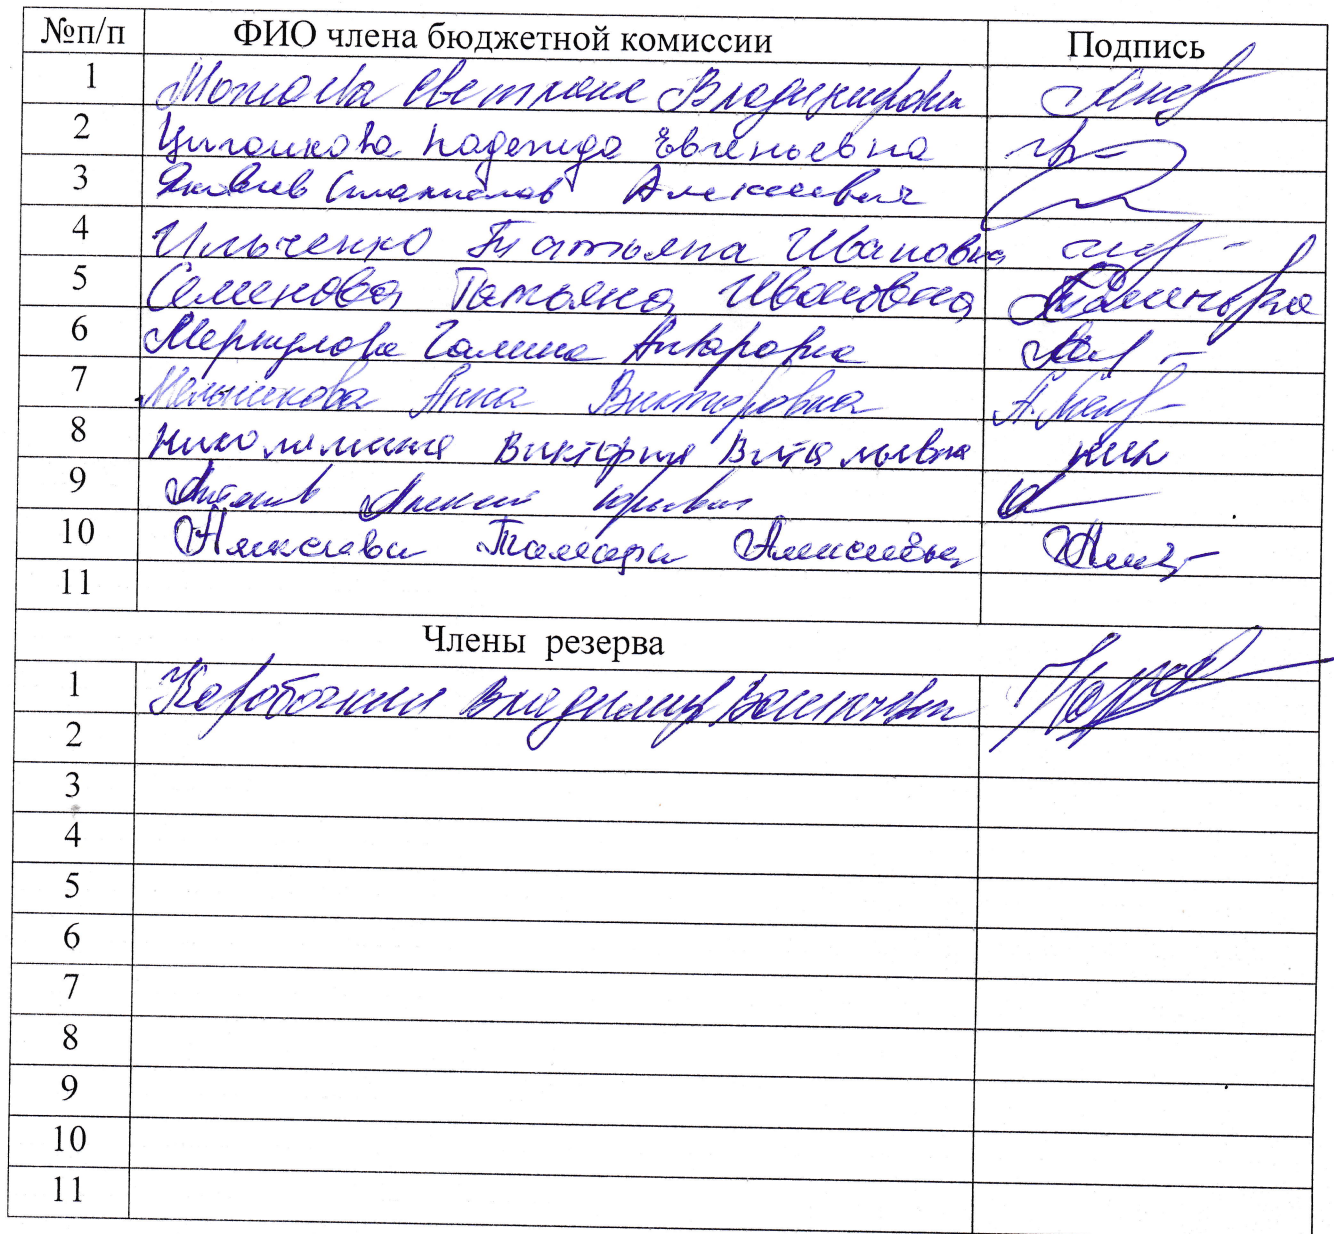 №п/п ФИО члена бюджетной комиссии Подпись
1 Светлана Владимировна
2 Цыганкова Надежда Евгеньевна
3 Яковлев Станислав Алексеевич
4 Ильченко Татьяна Ивановна
5 Семенова Татьяна Ивановна
6 Меркулова Галина
7 Мельникова Анна Викторовна
8 Виктория Витальевна
9 Алексей Юрьевич
10 Алексеева Тамара Алексеевна
11
Члены резерва
1 Коробочкин Владимир
2
3
4
5
6
7
8
9
10
11